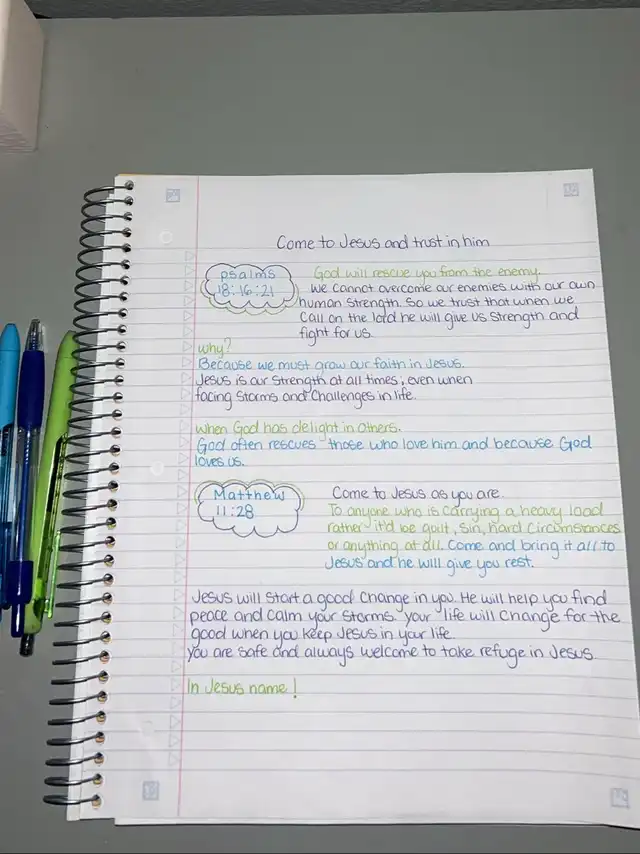 Come to Jesus and trust in him
psalms
18:16:21
God will rescue you from the enemy.
We cannot overcome our enemies with our own
human strength. So we trust that when we
call on the lord he will give us strength and
fight for us.
why?
Because we must grow our faith in Jesus.
Jesus is our strength at all times; even when
facing storms and challenges in life.
when God has delight in others.
God often rescues those who love him and because God
loves us.
Matthew
11:28
Come to Jesus as you are.
To anyone who is carrying a heavy load
rather it'd be guilt, sin, hard circumstances
or anything at all. Come and bring it all to
Jesus and he will give you rest.
Jesus will start a good change in you. He will help you find
peace and calm your storms. your life will change for the
good when you keep Jesus in your life.
you are safe and always welcome to take refuge in Jesus.
In Jesus name!